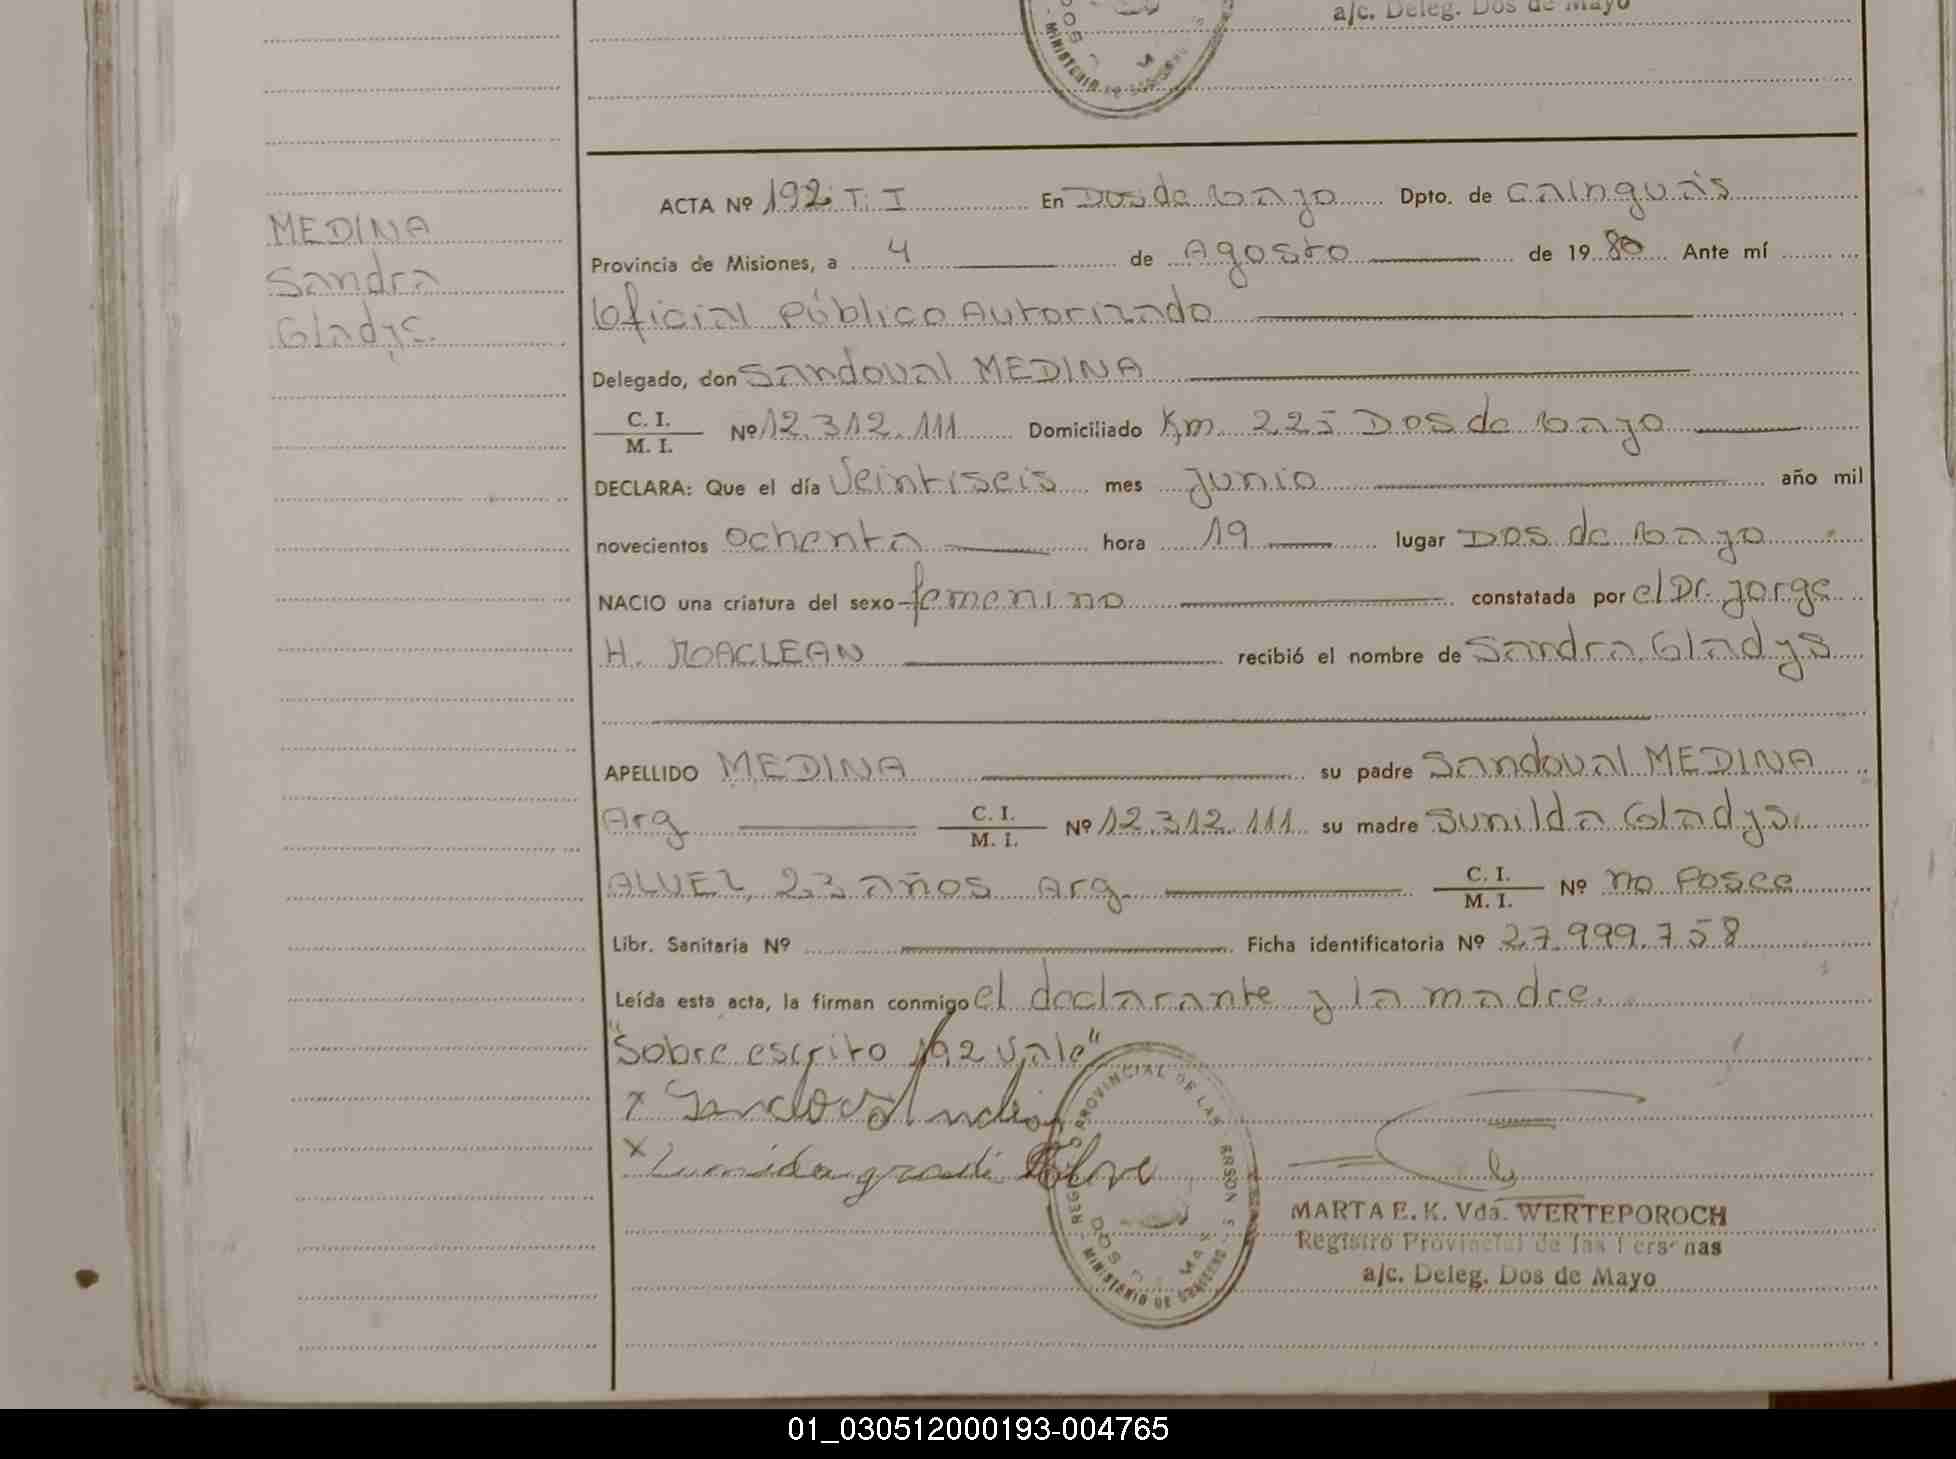 a/c. Deleg. Dos de Mayo
MINISTERIO DE GOBIERNO
MEDINA
Sandra
Gladys.
ACTA Nº 192 T. I En Dos de Mayo Dpto. de Cainguás
Provincia de Misiones, a 4 de Agosto de 1980 Ante mí
Oficial Público Autorizado
Delegado, don Sandoval MEDINA
C. I.
M. I. Nº 12.312.111 Domiciliado Km. 225 Dos de Mayo
DECLARA: Que el día Veintiseis mes Junio año mil
novecientos ochenta hora 19 lugar Dos de Mayo
NACIO una criatura del sexo femenino constatada por el Dr. Jorge
H. MACLEAN recibió el nombre de Sandra Gladys
APELLIDO MEDINA su padre Sandoval MEDINA
Arg C. I. M. I. Nº 12.312.111 su madre Sunilda Gladys
ALVEZ 23 años Arg. C. I. M. I. Nº no Posee
Libr. Sanitaria Nº Ficha identificatoria Nº 27.999.758
Leída esta acta, la firman conmigo el declarante y la madre.
"Sobre escrito 192 Vale"
x Sandoval
x
REG PROVINCIAL DE LAS PERSONAS
DOS MAY
MINISTERIO DE GOBIERNO
MARTA E. K. Vda. WERTEPOROCH
Registro Provincial de las Personas
a/c. Deleg. Dos de Mayo
01_030512000193-004765